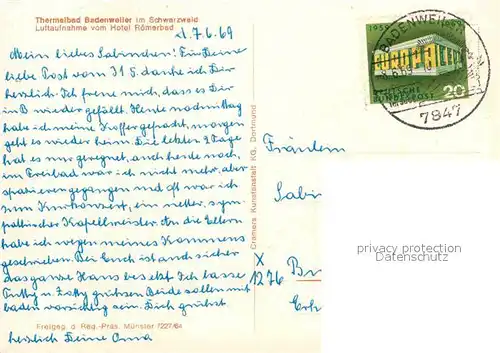 Thermalbad Badenweiler im Schwarzwald
Luftaufnahme vom Hotel Römerbad
d. 7.6.69
Mein liebes Sabinchen! Für Deine
liebe Post vom 31.5. danke ich Dir
herzlich. Ich freue mich, dass es Dir
in B. wieder gefällt. Heute nachmittag
habe ich meine Koffer gepackt, morgen
geht es wieder heim. Die letzten 2 Tage
hat es nur geregnet, auch heute noch,
im Freibad war ich nicht mehr, aber
spazierengegangen und oft war ich
zum Kurkonzert, ein netter, sym-
pathischer Kapellmeister. An die Eltern
habe ich wegen meines Kommens
geschrieben. Bei Euch ist auch sicher
das ganze Haus besetzt. Ich lasse
Putty u. Zotty grüßen. Beide sollen mit
baden vorsichtig sein. Dich grüsst
herzlich Deine Oma
Freigeg. d. Reg.-Präs. Münster 7227/64
Cramers Kunstanstalt KG, Dortmund
X
1276
BADENWEILER
7847
EUROPA CEPT
DEUTSCHE
BUNDESPOST
20
Fräulein
Sabin
privacy protection
Br